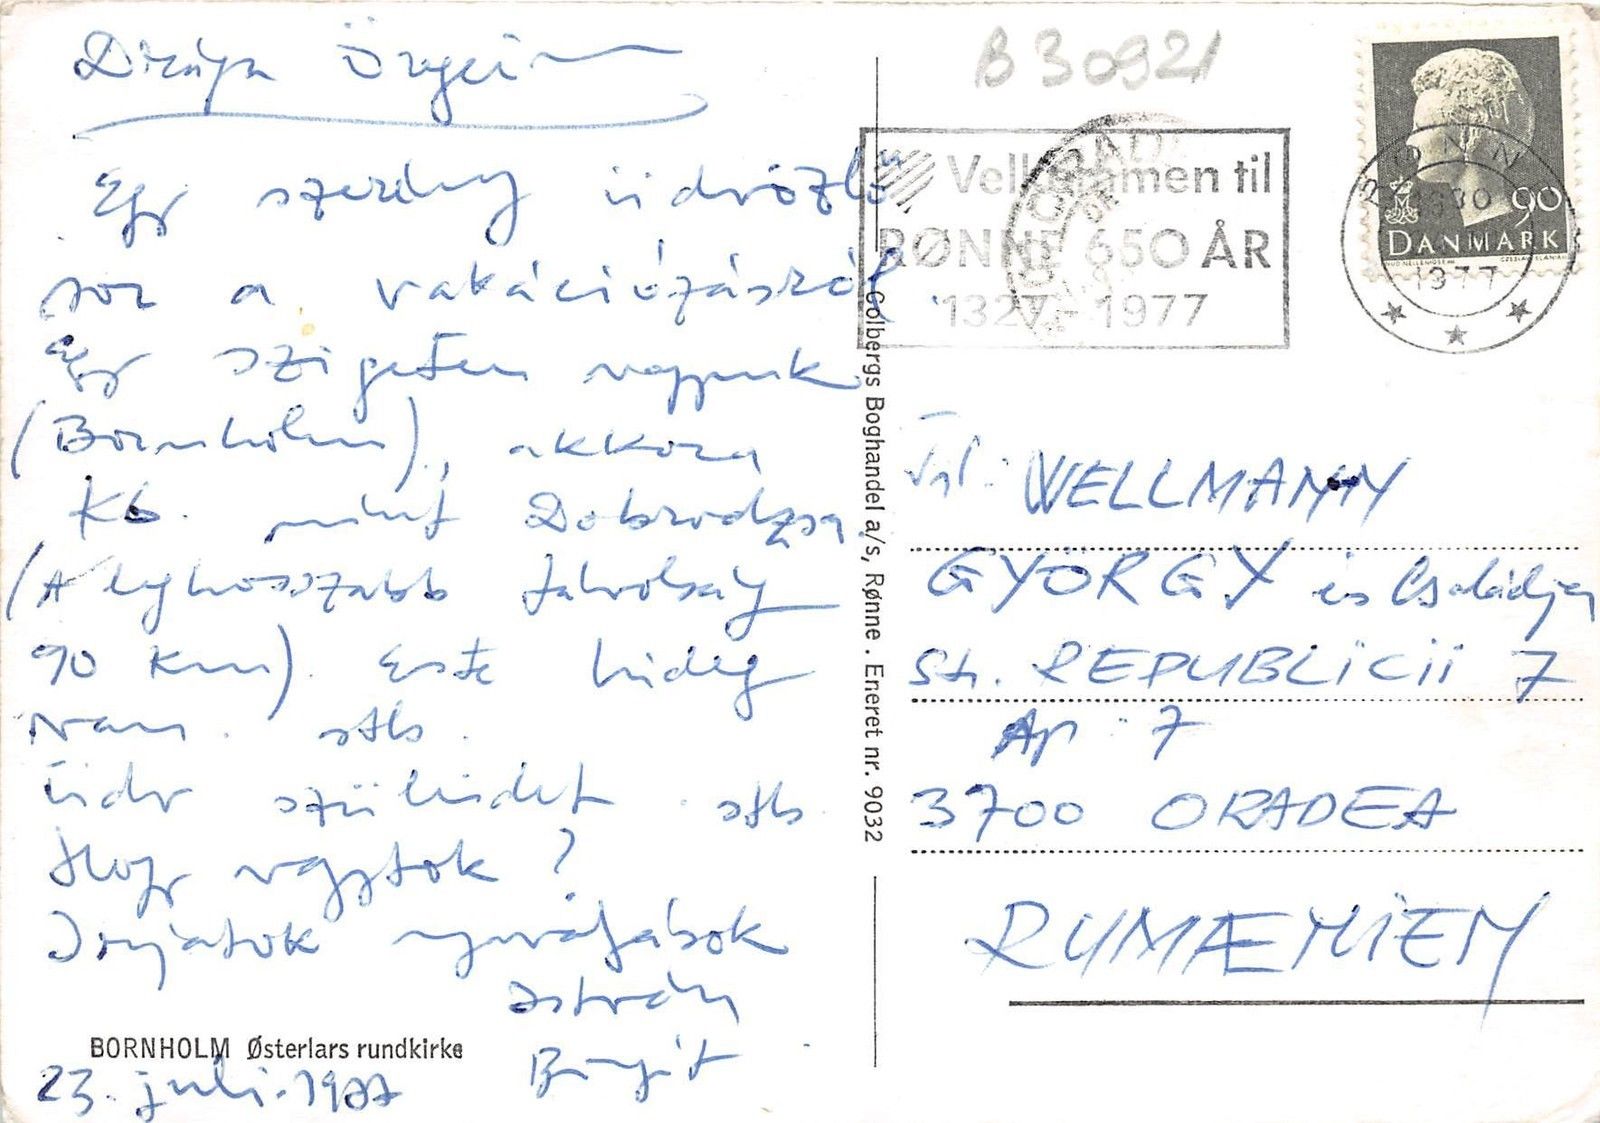 Drága Öregeim
Egy szerény üdvözlő
sor a vakációzásról
Egy szigeten vagyunk
(Bornholm), akkora
Kb. mint Dobrudzsa.
(A leghosszabb távolság
90 km). Este hideg
van. stb.
üdv szüleidet stb.
Hogy vagytok?
Írjatok nyaralástok
István
Birgit
BORNHOLM Østerlars rundkirke
23. juli. 1977
Colbergs Boghandel a/s, Rønne . Eneret nr. 9032
B 30921
Velkommen til
RØNNE 650 ÅR
1327 - 1977
90
DANMARK
1977
WELLMANN
GYÖRGY és Családja
Str. REPUBLICII 7
Ap 7
3700 ORADEA
RUMÆNIEN